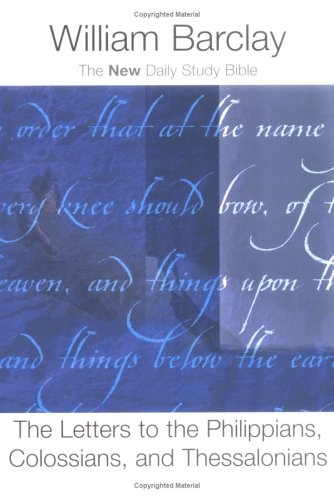 Copyrighted Material
William Barclay
The New Daily Study Bible
order that at the name
every knee should bow, of t
eaven, and things upon the
and things below the ear
The Letters to the Philippians,
Colossians, and Thessalonians
Copyrighted Material